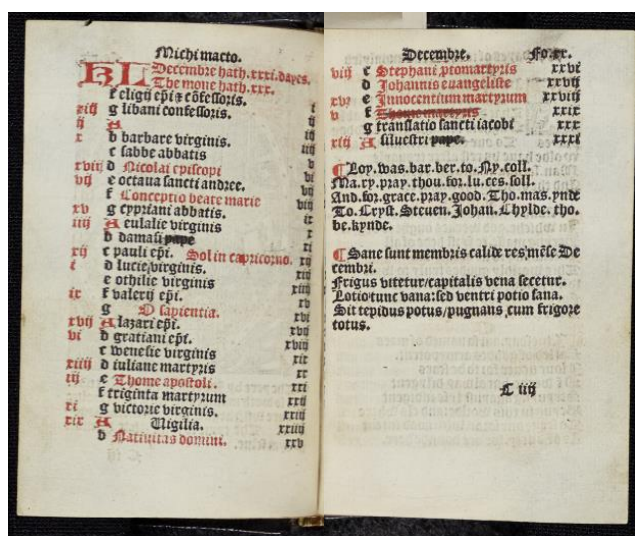 Michi macto.
KL Decembre hath.xxxi.dayes.
The mone hath.xxx.
f eligii epi & cõfessoris. i
xiij g libani confessoris. ij
ij A iij
x b barbare virginis. iiij
c sabbe abbatis v
xviij d Nicolai episcopi vi
vij e octaua sancti andree. vij
f Conceptio beate marie viij
xv g cypriani abbatis. ix
iiij A eulalie virginis x
b damasi pape xi
xij c pauli epi. Sol in capricorno. xij
i d lucie virginis. xiij
e othilie virginis xiiij
ix f valerij epi. xv
g O sapientia. xvi
xvij A lazari epi. xvij
vi b gratiani epi. xviij
c wenesie virginis xix
xiiij d iuliane martyris xx
iij e Thome apostoli. xxi
f triginta martyrum xxij
xi g victorie virginis. xxiij
xix A Uigilia. xxiiij
b Natiuitas domini. xxv
Decembre. Fo.xx.
viij c Stephani ptomartyris xxvi
d Johannis euangeliste xxvij
xvi e Innocentium martyrum xxviij
v f Thome martyris xxix
g translatio sancti iacobi xxx
xiij A siluestri pape. xxxi
¶ Loy.was.bar.ber.to.Ny.coll.
Ma.ry.pray.thou.for.lu.ces.soll.
And.for.grace.pray.good.Tho.mas.ynde
To.Cryst.Steuen.Johan.Chylde.tho.
be.kynde.
¶ Sane sunt membris calide res mẽse De
cembri.
Frigus vitetur/capitalis vena secetur.
Lotio tunc vana: sed ventri potio sana.
Sit tepidus potus/pugnans cum frigore
totus.
C iij